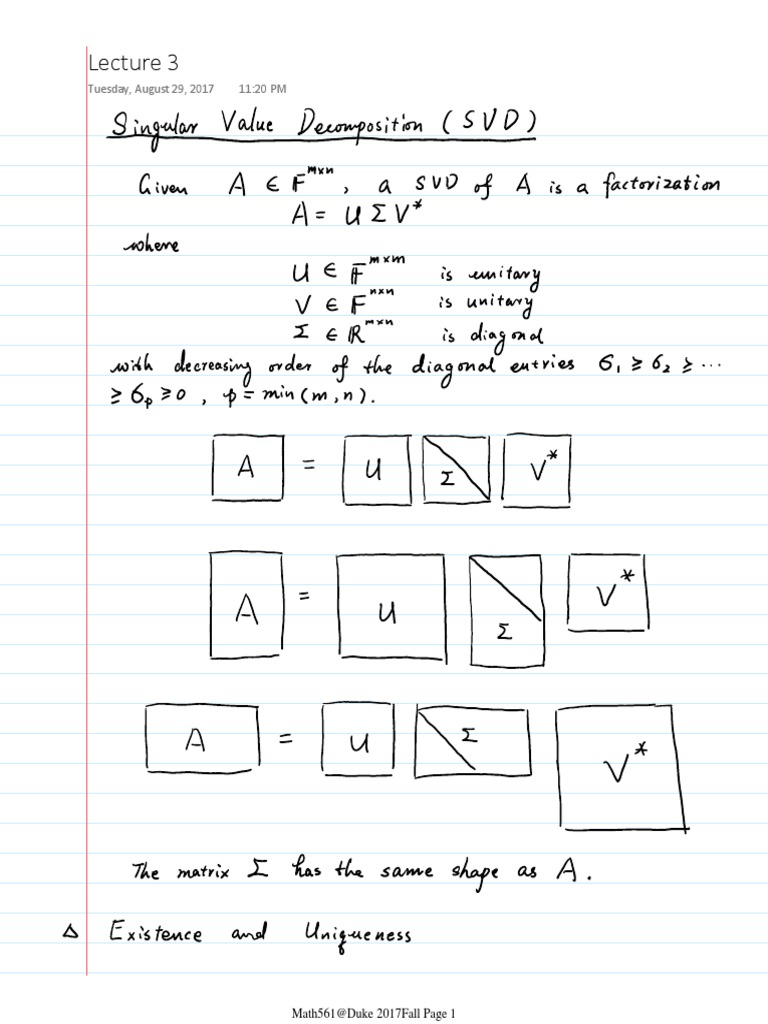 Lecture 3
Tuesday, August 29, 2017 11:20 PM
Singular Value Decomposition (SVD)
Given A ∈ F^{m×n}, a SVD of A is a factorization
A = U Σ V*
where
U ∈ F^{m×m} is unitary
V ∈ F^{n×n} is unitary
Σ ∈ ℝ^{m×n} is diagonal
with decreasing order of the diagonal entries σ₁ ≥ σ₂ ≥ ⋯
≥ σₚ ≥ 0, p = min(m,n).
A = U Σ V*
A = U Σ V*
A = U Σ V*
The matrix Σ has the same shape as A.
△ Existence and Uniqueness
Math561@Duke 2017Fall Page 1